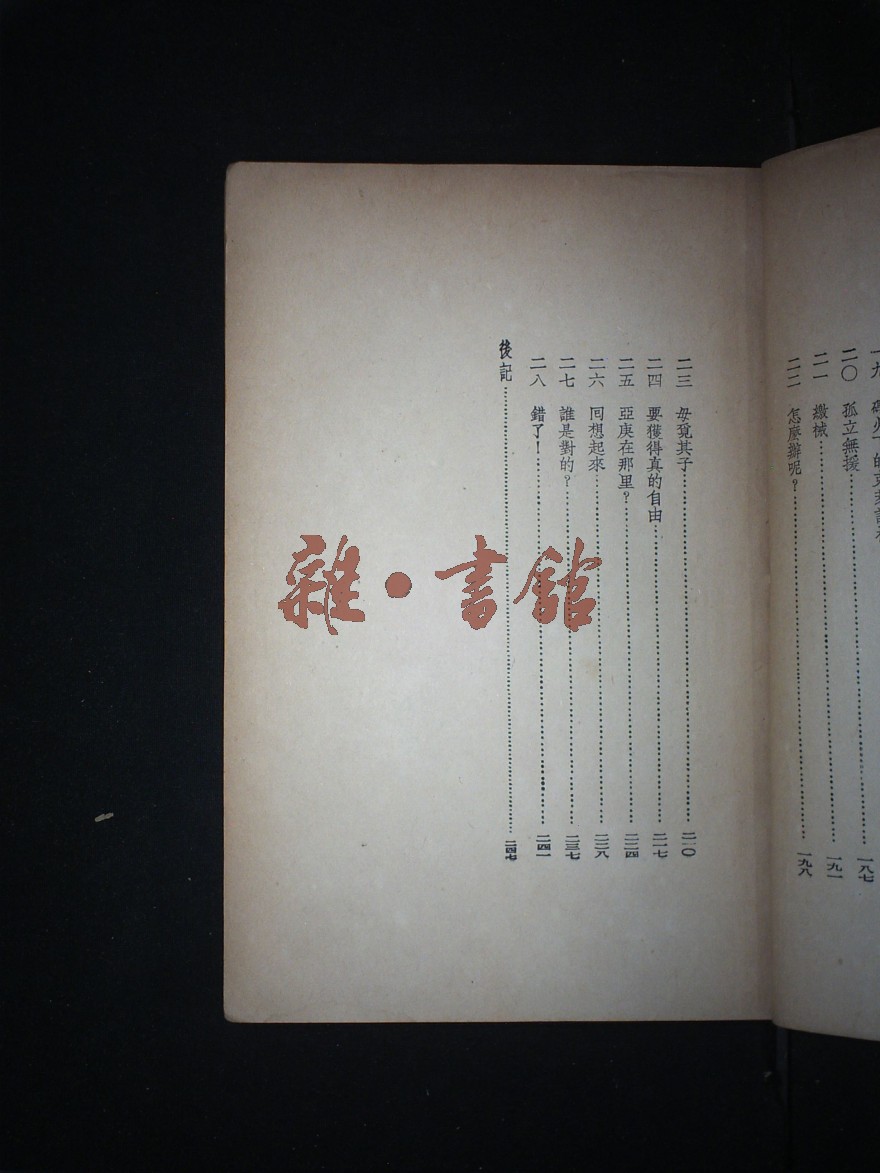 一九
的
一八七
二〇 孤立無援……一八七
二一 繳械……一九一
二二 怎麼辦呢？……一九八
二三 毋覓其子……二一〇
二四 要獲得真的自由……二一七
二五 亞庚在那里？……二二四
二六 囘想起來……二二八
二七 誰是對的？……二三七
二八 錯了！……二四一
後記……二四七
雜·書館